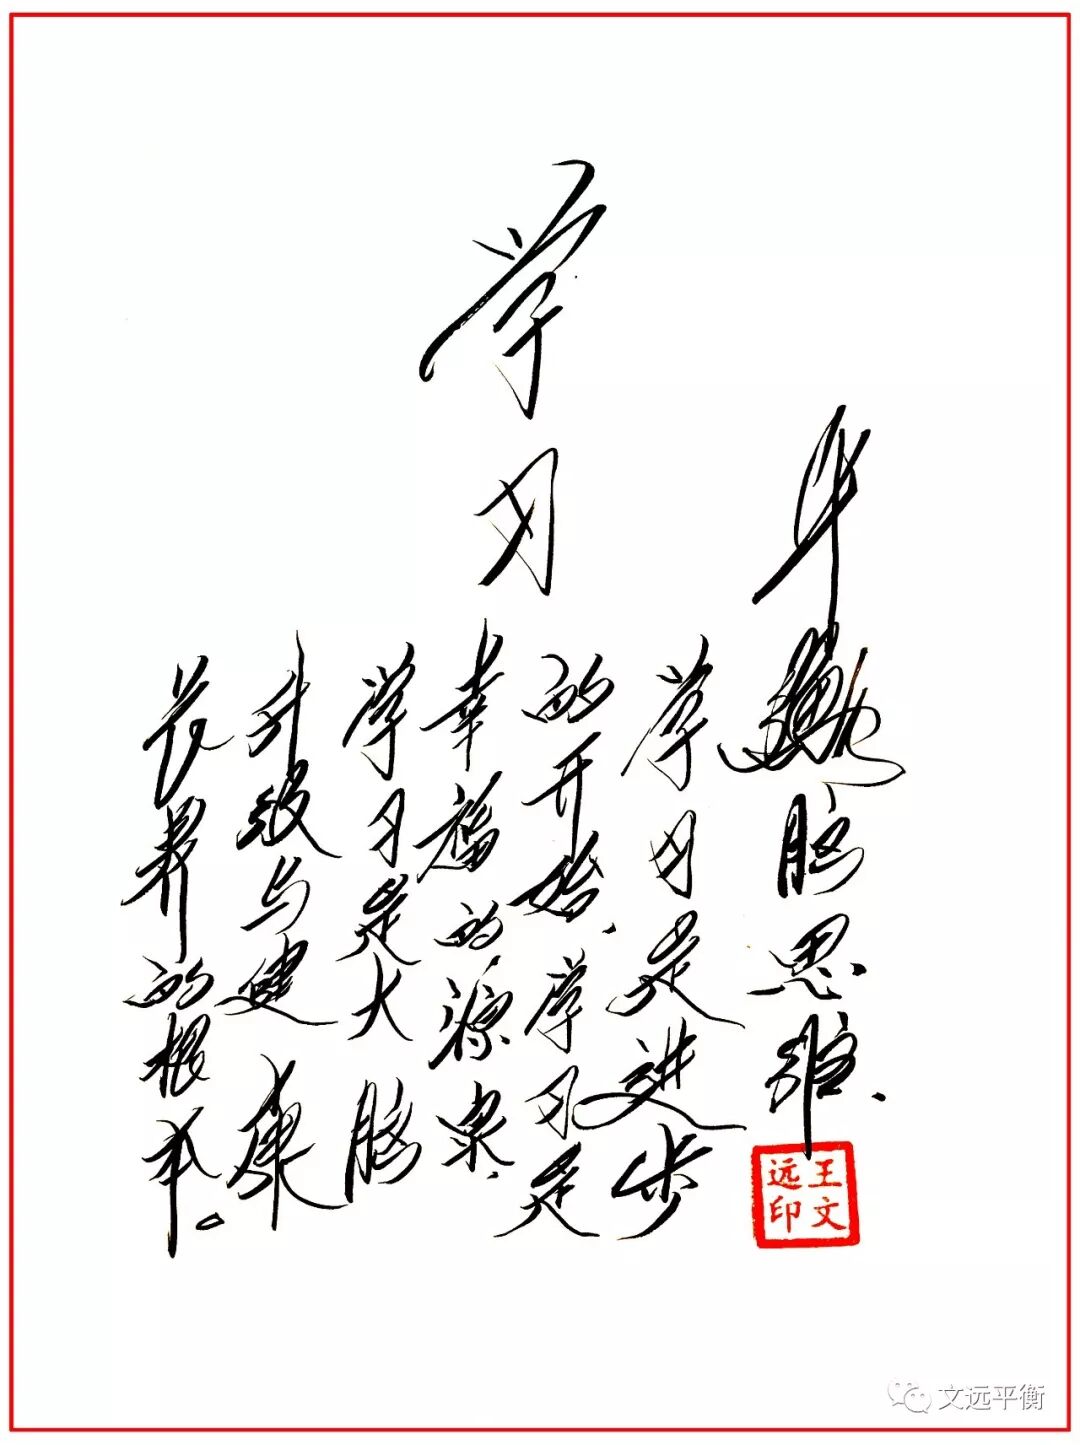 学习
平衡脑思维、
学习是进步
的开始、学习是
幸福的源泉、
学习是大脑
升级与健康
营养的根本。
王文
远印
文远平衡